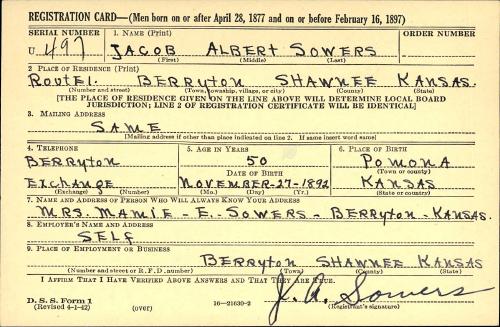 REGISTRATION CARD—(Men born on or after April 28, 1877 and on or before February 16, 1897)
SERIAL NUMBER 1. NAME (Print) ORDER NUMBER
U 497 JACOB ALBERT SOWERS
(First) (Middle) (Last)
2. PLACE OF RESIDENCE (Print)
ROUTE 1. BERRYTON SHAWNEE KANSAS.
(Number and street) (Town, township, village, or city) (County) (State)
[THE PLACE OF RESIDENCE GIVEN ON THE LINE ABOVE WILL DETERMINE LOCAL BOARD
JURISDICTION; LINE 2 OF REGISTRATION CERTIFICATE WILL BE IDENTICAL]
3. MAILING ADDRESS
SAME
[Mailing address if other than place indicated on line 2. If same insert word same]
4. TELEPHONE 5. AGE IN YEARS 6. PLACE OF BIRTH
BERRYTON 50 POMONA
DATE OF BIRTH (Town or county)
EXCHANGE NOVEMBER-27-1892 KANSAS
(Exchange) (Number) (Mo.) (Day) (Yr.) (State or country)
7. NAME AND ADDRESS OF PERSON WHO WILL ALWAYS KNOW YOUR ADDRESS
MRS. MAMIE - E. SOWERS - BERRYTON - KANSAS.
8. EMPLOYER'S NAME AND ADDRESS
SELF
9. PLACE OF EMPLOYMENT OR BUSINESS
BERRYTON SHAWNEE KANSAS
(Number and street or R. F. D. number) (Town) (County) (State)
I AFFIRM THAT I HAVE VERIFIED ABOVE ANSWERS AND THAT THEY ARE TRUE.
D. S. S. Form 1
(Revised 4-1-42) (over) 16—21630-2 J. A. Sowers
(Registrant's signature)